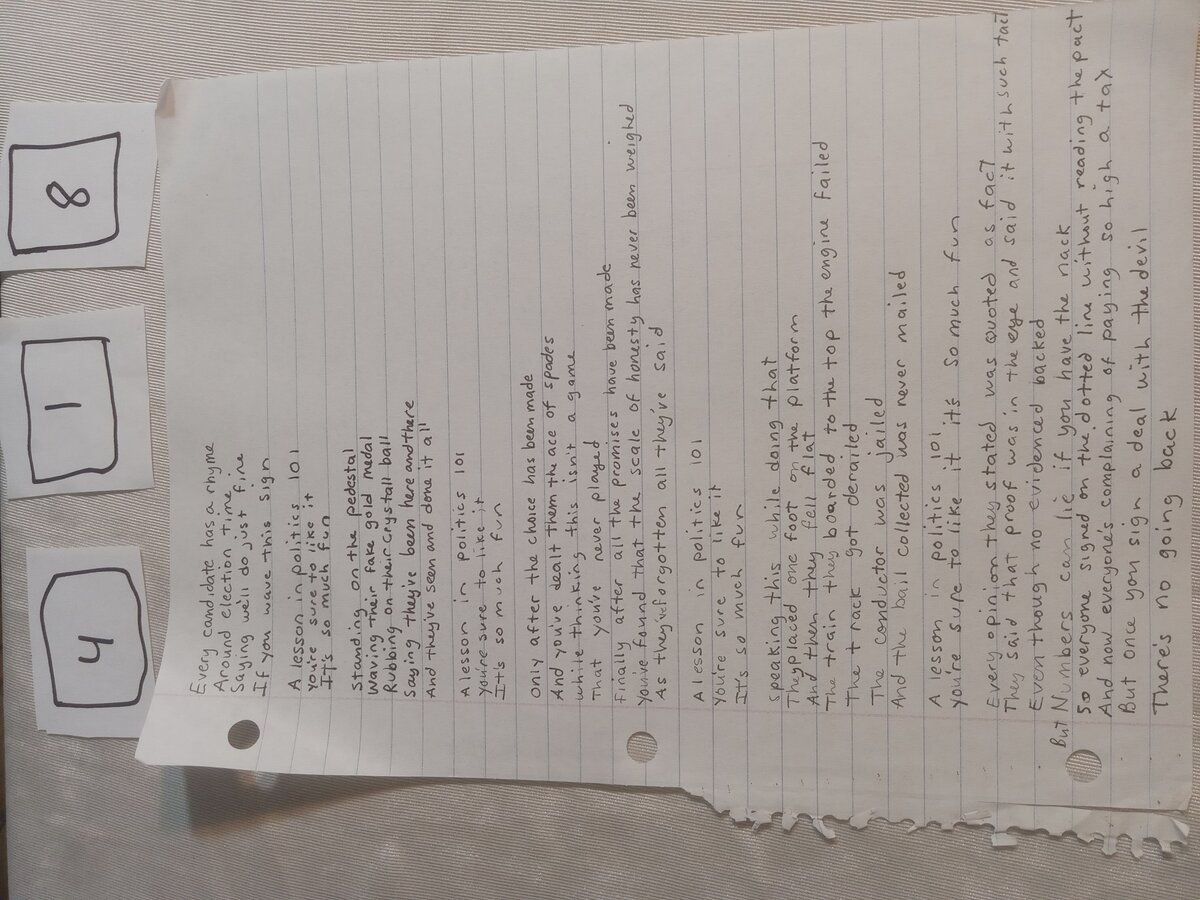 4
1
8
Every candidate has a rhyme
Around election time
Saying we'll do just fine
If you wave this sign
A lesson in politics 101
You're sure to like it
It's so much fun
Standing on the pedestal
Waving their fake gold medal
Rubbing on their crystall ball
Saying they've been here and there
And they've seen and done it all
A lesson in politics 101
You're sure to like it
It's so much fun
Only after the choice has been made
And you've dealt them the ace of spades
While thinking this isn't a game
That you've never played
Finally after all the promises have been made
You've found that the scale of honesty has never been weighed
As they've forgotten all they've said
A lesson in politics 101
You're sure to like it
It's so much fun
Speaking this while doing that
They placed one foot on the platform
And then they fell flat
The train they boarded to the top the engine failed
The track got derailed
The conductor was jailed
And the bail collected was never mailed
A lesson in politics 101
You're sure to like it it's so much fun
Every opinion they stated was quoted as fact
They said that proof was in the eye and said it with such tact
Even though no evidenced backed
But Numbers can lie if you have the nack
So everyone signed on the dotted line without reading the pact
And now everyone's complaining of paying so high a tax
But once you sign a deal with the devil
There's no going back